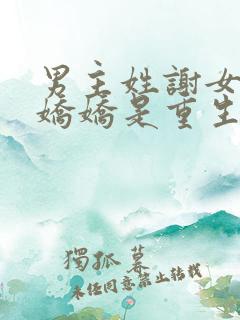 男主姓謝女
嬌嬌是重生
獨孤暮
未经同意禁止转载